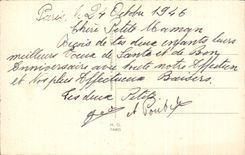 Paris, le 24 Octobre 1946
Chère Petite Maman
Reçois de tes deux enfants leurs
meilleurs Voeux de Santé et de Bon
Anniversaire avec toute notre Affection
et Nos plus Affectueux Baisers.
Tes deux Petits
et
PARIS